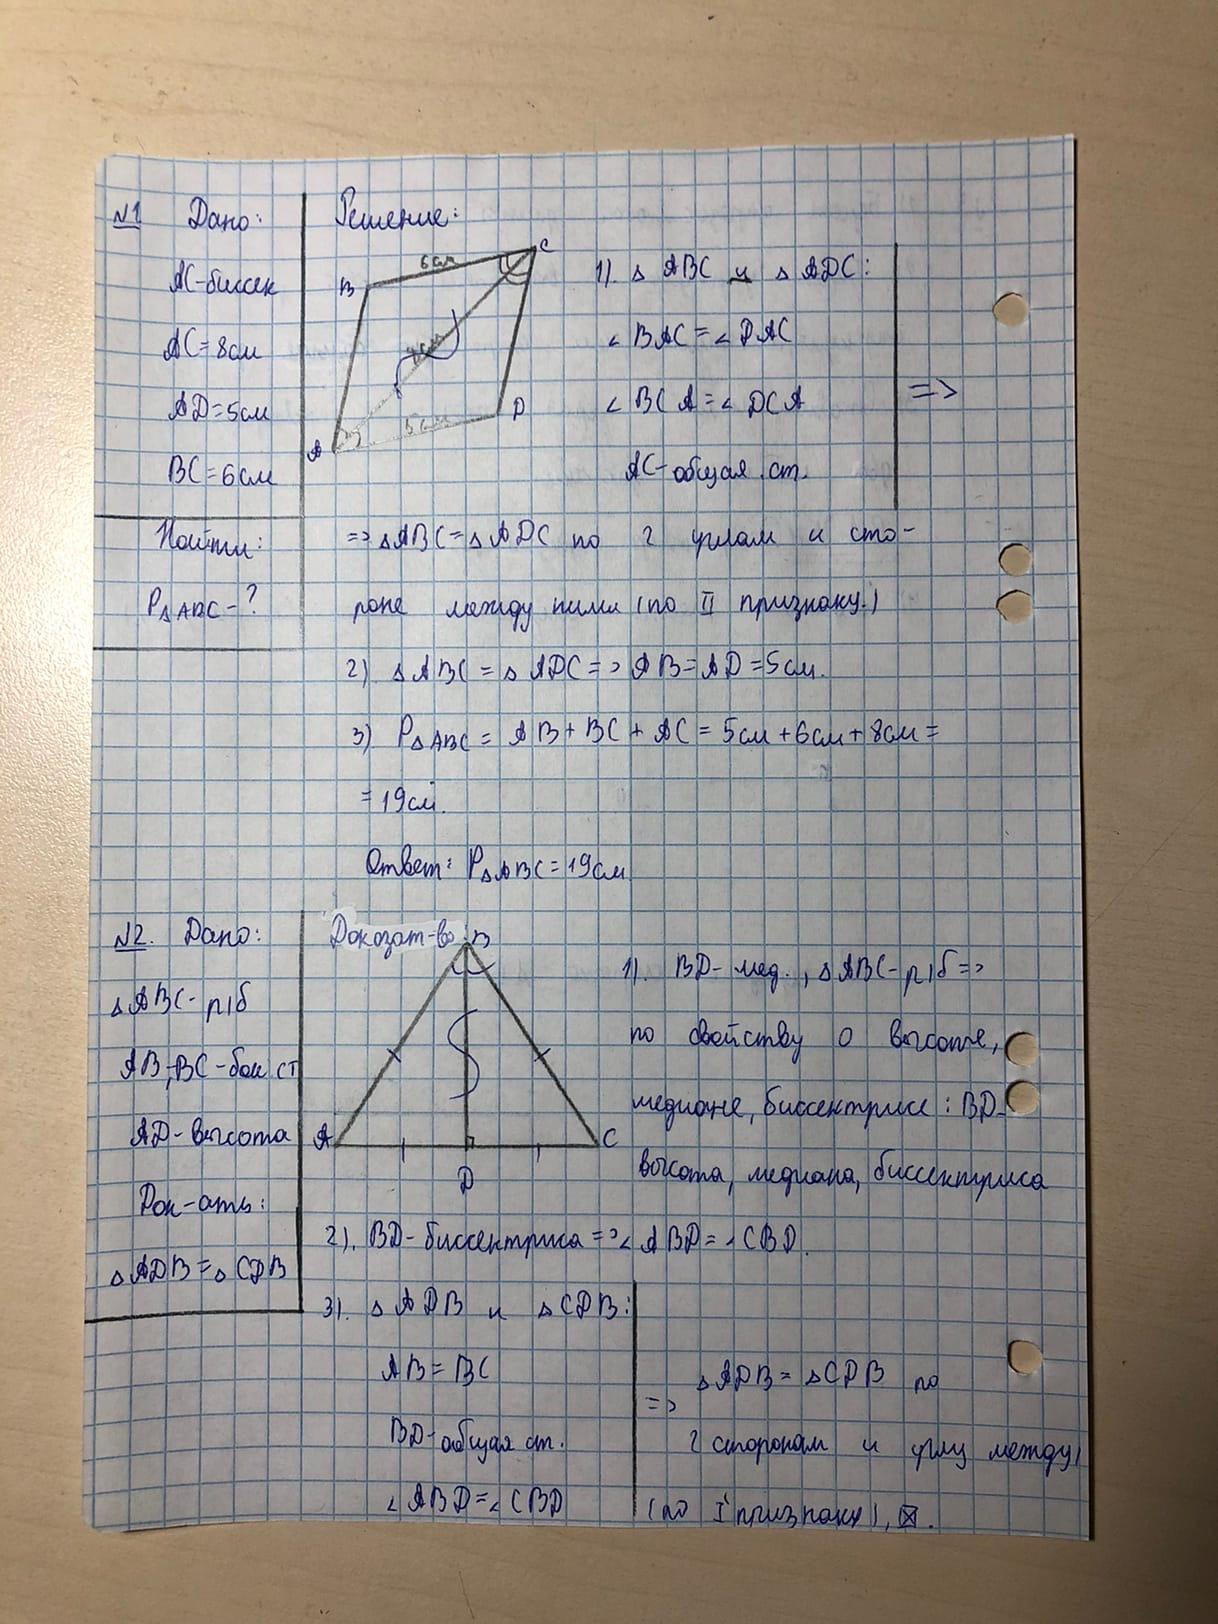 №1 Дано:
AC-биссек
AC=8см
AD=5см
BC=6см
Найти:
P△ABC-?
Решение:
6см
C
B
8см
5см
D
A
1). △ ABC и △ ADC:
∠ BAC=∠ DAC
∠ BCA=∠ DCA
AC-общая ст.
=>
=> △ABC=△ADC по 2 углам и сто-
роне между ними (по II признаку.)
2) △ ABC = △ ADC => AB=AD=5см.
3) P△ABC = AB+BC+AC=5см+6см+8см=
=19см.
Ответ: P△ABC=19см
№2. Дано:
△ABC-р/б
AB,BC-бок ст
AD-высота
Док-ать:
△ADB=△CDB
Докозат-во:
B
A
C
D
1). BD-мед., △ABC-р/б=>
по свойству о высоте,
медиане, биссектрисе: BD-
высота, медиана, биссектриса
2). BD-биссектриса=>∠ABD=∠CBD.
3). △ADB и △CDB:
AB=BC
BD-общая ст.
∠ABD=∠CBD
=>
△ADB=△CDB по
2 сторонам и углу между,
(по I признаку),⊠.